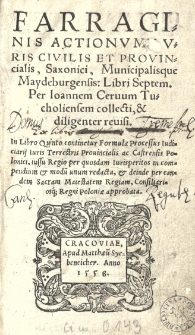 FARRAGI
NIS ACTIONVM IVRIS
CIVILIS ET PROVIN
cialis, Saxonici, Municipalisque
Maydeburgensis: Libri Septem.
Per Ioannem Ceruum Tu
choliensem collecti, &
diligenter reuisi.
Domus
In Libro Quinto continetur Formula Processus Iudi
ciarij Iuris Terrestris Prouincialis ac Castrensis Po
lonici, iussu Regio per quosdam Iurisperitos in com
pendium & modum unum redacta, & deinde per ean
dem Sacram Maiestatem Regiam, Consiliarios
Regni Poloniæ approbata.
CRACOVIAE,
Apud Matthæū Sye
beneicher. Anno
1558.